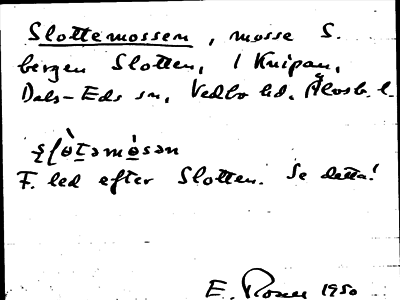 Slottemossen, mosse S.
bergen Slotten, i Knipan,
Dals-Eds sn, Vedbo hd. Älvsb. l.
F. led efter Slotten. Se detta!
E. Rosen 1950